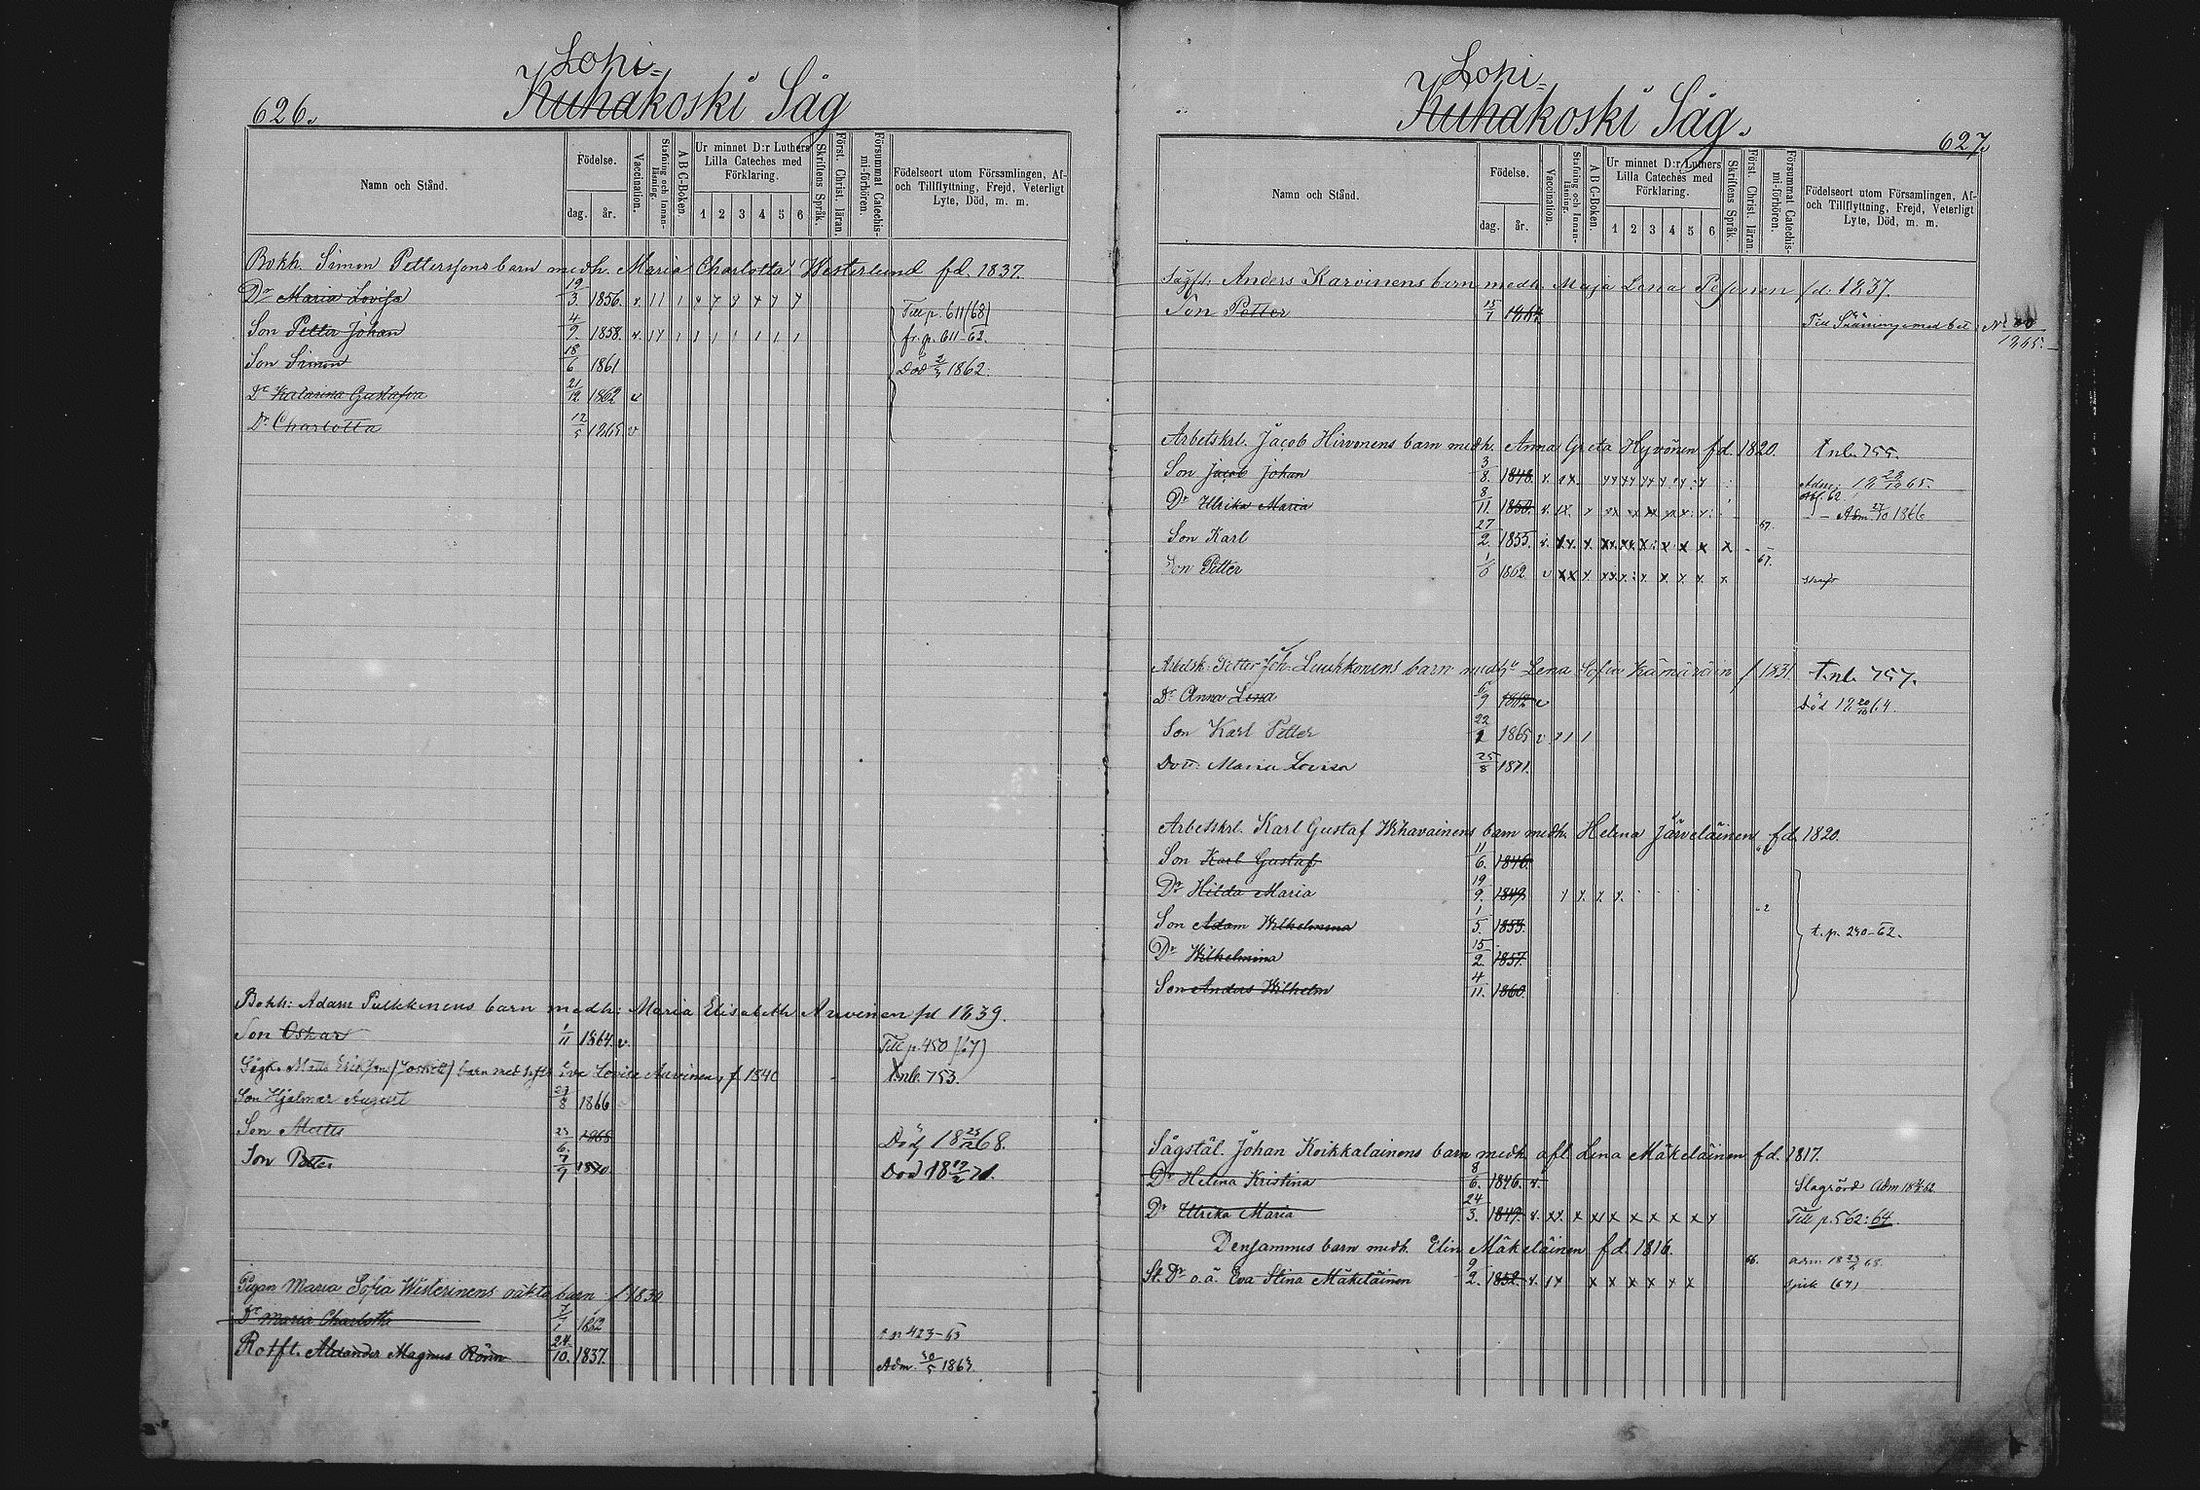 626.
Lohi=
Kuhakoski Såg
Namn och Stånd.
Födelse.
dag. år.
Vaccination.
Stafning och Innan-läsning.
A B C-Boken.
Ur minnet D:r Luthers Lilla Cateches med Förklaring.
1 2 3 4 5 6
Skriftens Språk.
Först. Christ. läran.
Försummat Catechis-mi-förhören.
Födelseort utom Församlingen, Af- och Tillflyttning, Frejd, Veterligt Lyte, Död, m. m.
Bokh. Simon Petterssons barn medh. Maria Charlotta Westerlund fd. 1837.
Dr Maria Lovisa 19/3 1856. Till p. 611/68)
Son Petter Johan 4/9. 1858. fr. p. 611-62.
Son Simon 18/6 1861 Död 2/4 1862.
Dr Katarina Gustafva 21/12 1862 v
Dr Charlotta 12/5 1865 v
Bokh: Adam Pulkkinens barn medh: Maria Elisabeth Auvinen fd 1839.
Son Oskar 1/11 1864. v. Till p. 450 /67)
Matts Eriksons barn med Eva Lovisa Auvinen, f. 1840 t. nb. 753.
Son Hjalmar August 1866
Son Matts 23/6. 1868 Död 18 68.
Son Petter 7/9 1870 Död 18 12/2 71.
Pigan Maria Sofia Westerinens oäkta barn f 1830
Dr Maria Charlotta 7/1 1862 t p 423-63
Rotfl. Alexander Magnus Rönn 24/10. 1837. Adm. 30/5 1863.
Lohi=
Kuhakoski Såg.
627.
Namn och Stånd.
Födelse.
dag. år.
Vaccination.
Stafning och Innan-läsning.
A B C-Boken.
Ur minnet D:r Luthers Lilla Cateches med Förklaring.
1 2 3 4 5 6
Skriftens Språk.
Först. Christ. läran.
Försummat Catechis-mi-förhören.
Födelseort utom Församlingen, Af- och Tillflyttning, Frejd, Veterligt Lyte, Död, m. m.
Anders Karvinens barn medh. Maja Lena Pesonen fd. 1837.
Son Petter 15/1 Till med bet. No 1865.
Arbetskrl. Jacob Hirvonens barn medh. Anna Greta Hyvönen fd. 1820. t nb. 755.
Son Jacob Johan 3/8. 1848. Adm. 65.
Dr Ulrika Maria 8/11. 1850. Adm 1866
Son Karl 27/2. 1855. 67.
Son Petter 1862 67.
Arbetsk: Petter Joh: Luukkonens barn medh Lena Sofia Kämäräin f 1831. t. nb. 757.
Dr Anna Lena 6/9 1862 Död 18 20/10 64.
Son Karl Petter 22/2 1865 v
Dott. Maria Lovisa 25/8 1871.
Arbetskrl. Karl Gustaf Wihavainens barn medh. Helena Järveläinen fd. 1820.
Son Karl Gustaf 11/6. 1846.
Dr Hilda Maria 19/9. 1849.
Son Adam Wilhelmina 1/5. 1853. t. p. 240-62.
Dr Wilhelmina 15/2. 1857.
Son Anders Wilhelm 4/11. 1860.
Sågstäl. Johan Koikkalainens barn medh. afl. Lena Mäkeläinen fd. 1817.
Dr Helena Kristina 8/6. 1846. v. Slagrörd Adm 62
Dr Ulrika Maria 24/3. 1849. v. Till p. 562: 64.
Densammes barn medh. Elin Mäkeläinen fd. 1816.
St. Dr o. ä. Eva Stina Mäkeläinen 9/2. 1852. v. 66. adm. 18 68.
sjuk (67)